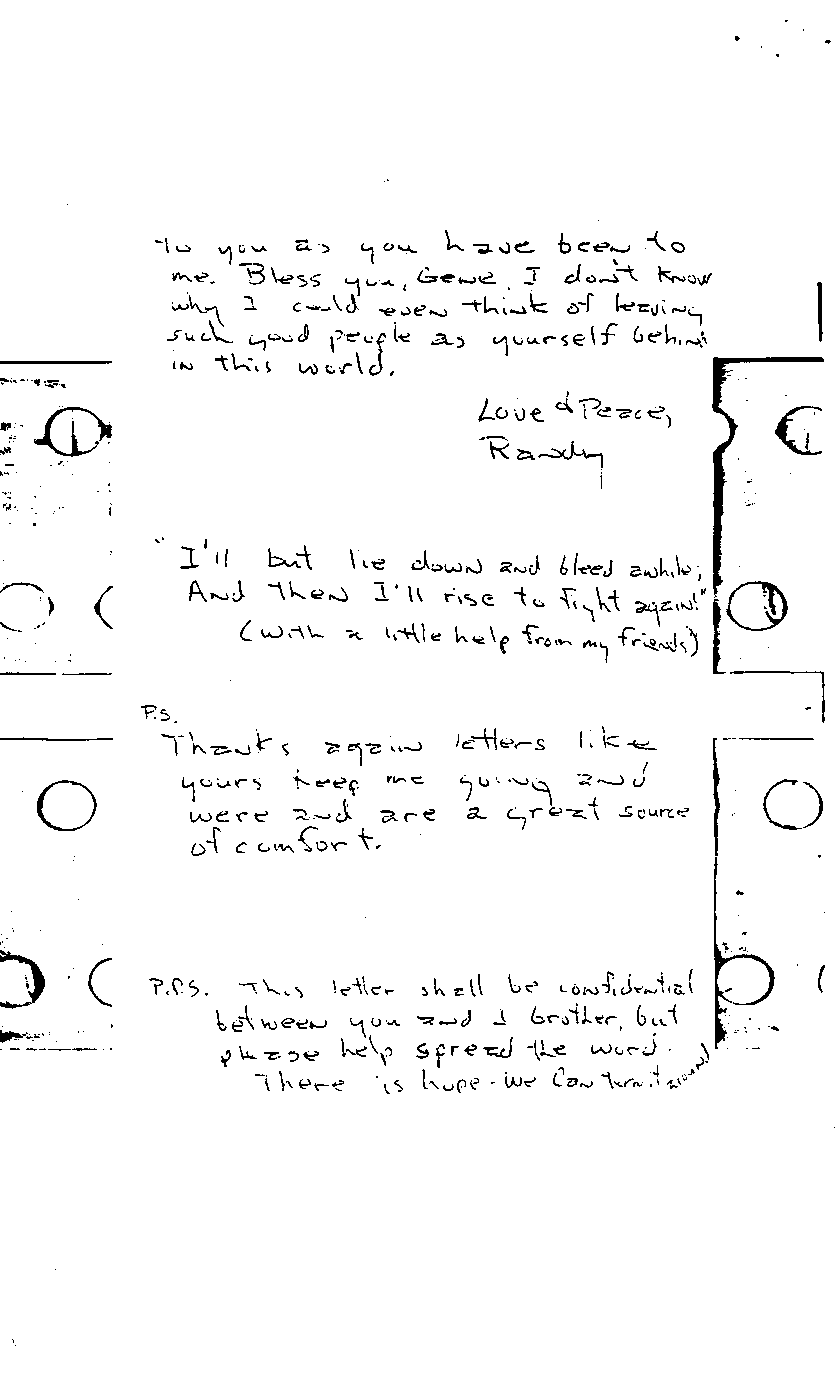 to you as you have been to
me. Bless you, Gene, I don't know
why I could even think of leaving
such good people as yourself behind
in this world.
Love & Peace,
Randy
"I'll but lie down and bleed awhile;
And then I'll rise to fight again!"
(with a little help from my friends)
P.S.
Thanks again letters like
yours keep me going and
were and are a great source
of comfort.
P.P.S. This letter shall be confidential
between you and I brother, but
please help spread the word.
There is hope - we can turn it around